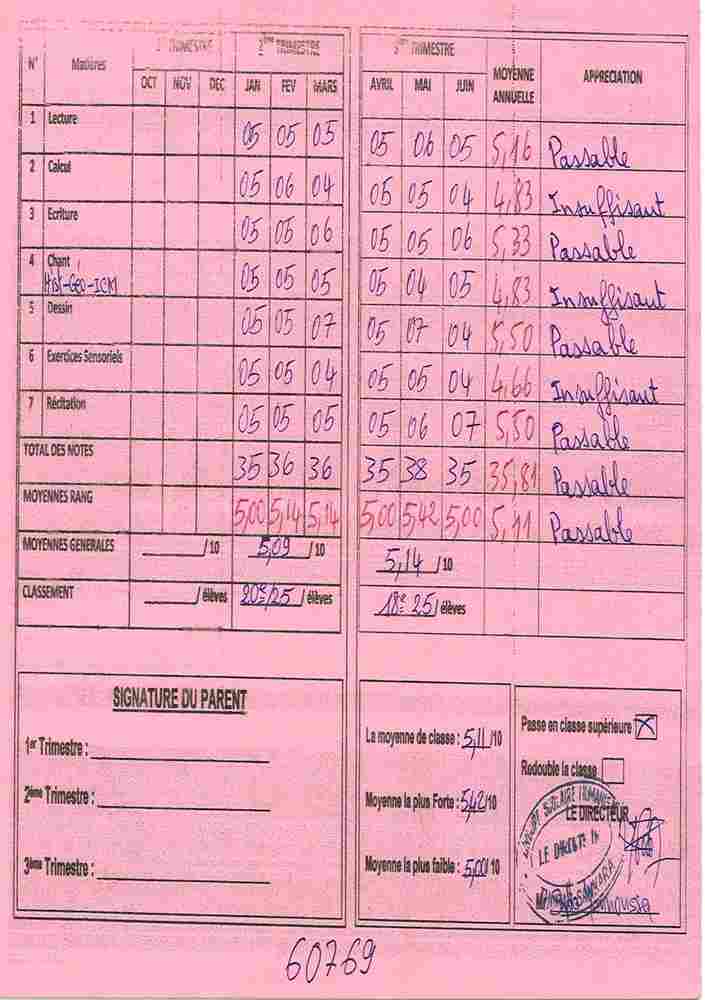 N° Matières 1er TRIMESTRE 2ème TRIMESTRE 3ème TRIMESTRE MOYENNE ANNUELLE APPRECIATION
OCT NOV DEC JAN FEV MARS AVRIL MAI JUIN
1 Lecture 05 05 05 05 06 05 5,16 Passable
2 Calcul 05 06 04 05 05 04 4,83 Insuffisant
3 Ecriture 05 05 06 05 05 06 5,33 Passable
4 Chant Hist-Geo-ICM 05 05 05 05 04 05 4,83 Insuffisant
5 Dessin 05 05 07 05 07 04 5,50 Passable
6 Exercices Sensoriels 05 05 04 05 05 04 4,66 Insuffisant
7 Récitation 05 05 05 05 06 07 5,50 Passable
TOTAL DES NOTES 35 36 36 35 38 35 35,81 Passable
MOYENNES RANG 5,00 5,14 5,14 5,00 5,42 5,00 5,11 Passable
MOYENNES GENERALES /10 5,09 /10 5,14 /10
CLASSEMENT / élèves 20e/25 / élèves 18e 25/ élèves
SIGNATURE DU PARENT
1er Trimestre :
2ème Trimestre :
3ème Trimestre :
La moyenne de classe : 5,11 /10
Moyenne la plus Forte : 5,42 /10
Moyenne la plus faible : 5,00 /10
Passe en classe supérieure X
Redouble la classe
LE DIRECTEUR
SCOLAIRE
60769